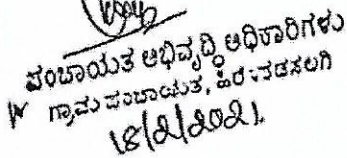 ಪಂಚಾಯತ ಅಭಿವೃದ್ಧಿ ಅಧಿಕಾರಿಗಳು
ಗ್ರಾಮ ಪಂಚಾಯತ, ಹಿರೇಪಡಸಲಗಿ
18/2/2021